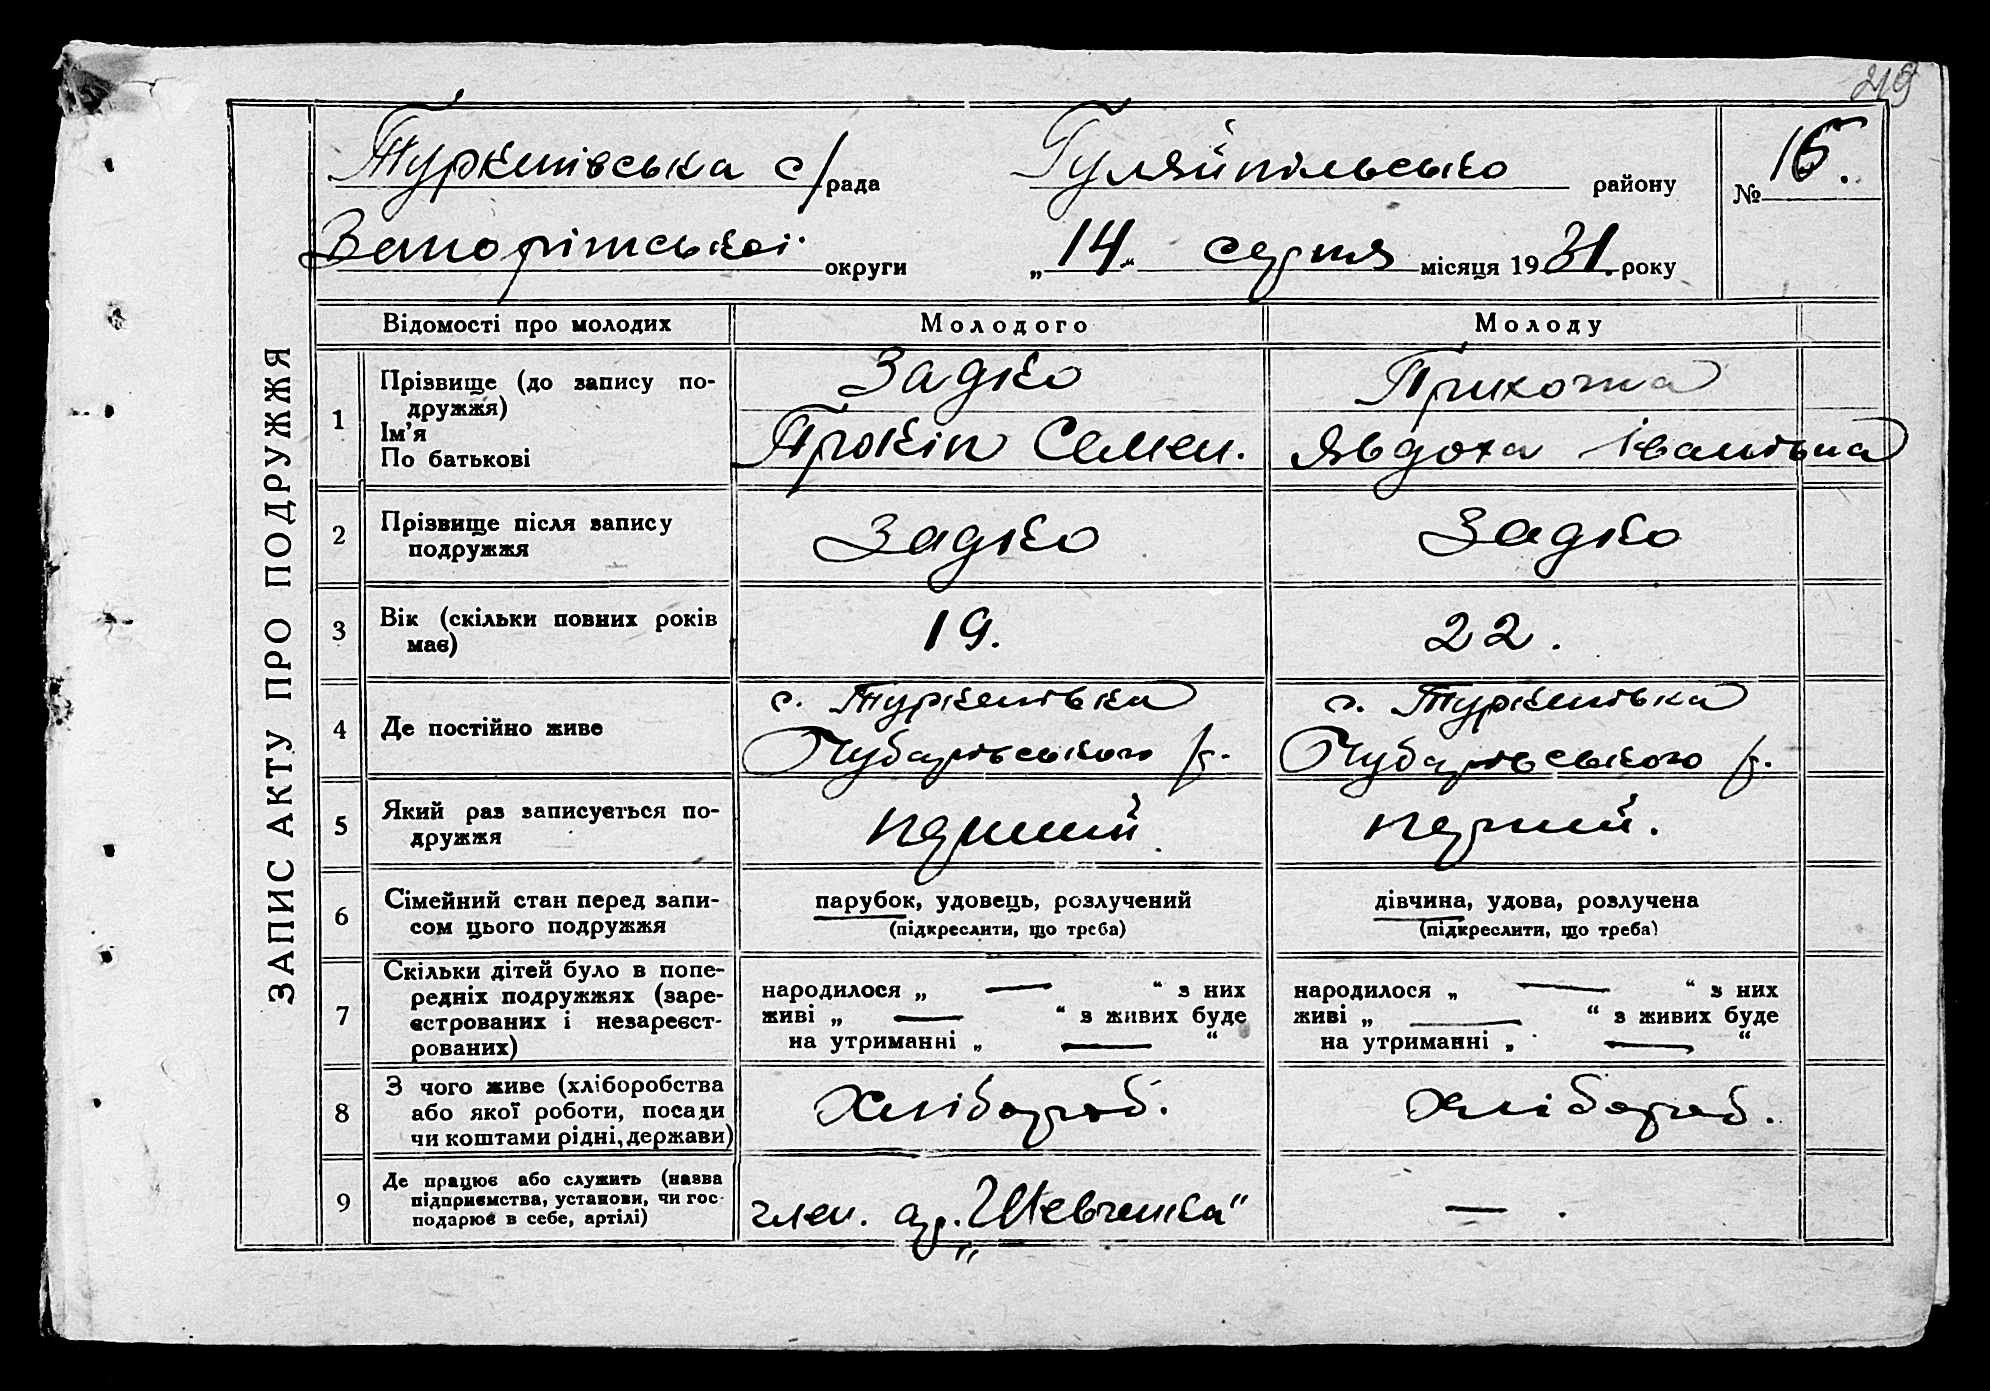 219
ЗАПИС АКТУ ПРО ПОДРУЖЖЯ
Туркенівська с/рада Гуляйпільсько району № 15.
Запорітської округи „14“ серпня місяця 1931 року
Відомості про молодих Молодого Молоду
1 Прізвище (до запису по-
дружжя)
Ім'я
По батькові
Задко
Прокіп Семен.
Прихотка
Явдоха Іванівна
2 Прізвище після запису
подружжя
Задко Задко
3 Вік (скільки повних років
має)
19. 22.
4 Де постійно живе
с. Туркенівка
Чубарівського р.
с. Туркенівка
Чубарівського р.
5 Який раз записується по-
дружжя
перший перший.
6 Сімейний стан перед запи-
сом цього подружжя
парубок, удовець, розлучений
(підкреслити, що треба)
дівчина, удова, розлучена
(підкреслити, що треба)
7 Скільки дітей було в попе-
редніх подружжях (заре-
єстрованих і незареєст-
рованих)
народилося „ — “ з них
живі „ — “ з живих буде
на утриманні „ — “
народилося „ — “ з них
живі „ — “ з живих буде
на утриманні „ — “
8 З чого живе (хліборобства
або якої роботи, посади
чи коштами рідні, держави)
Хлібороб. Хлібороб.
9 Де працює або служить (назва
підприємства, установи, чи гос-
подарює в себе, артілі)
член. ар. „Шевченка“ — .